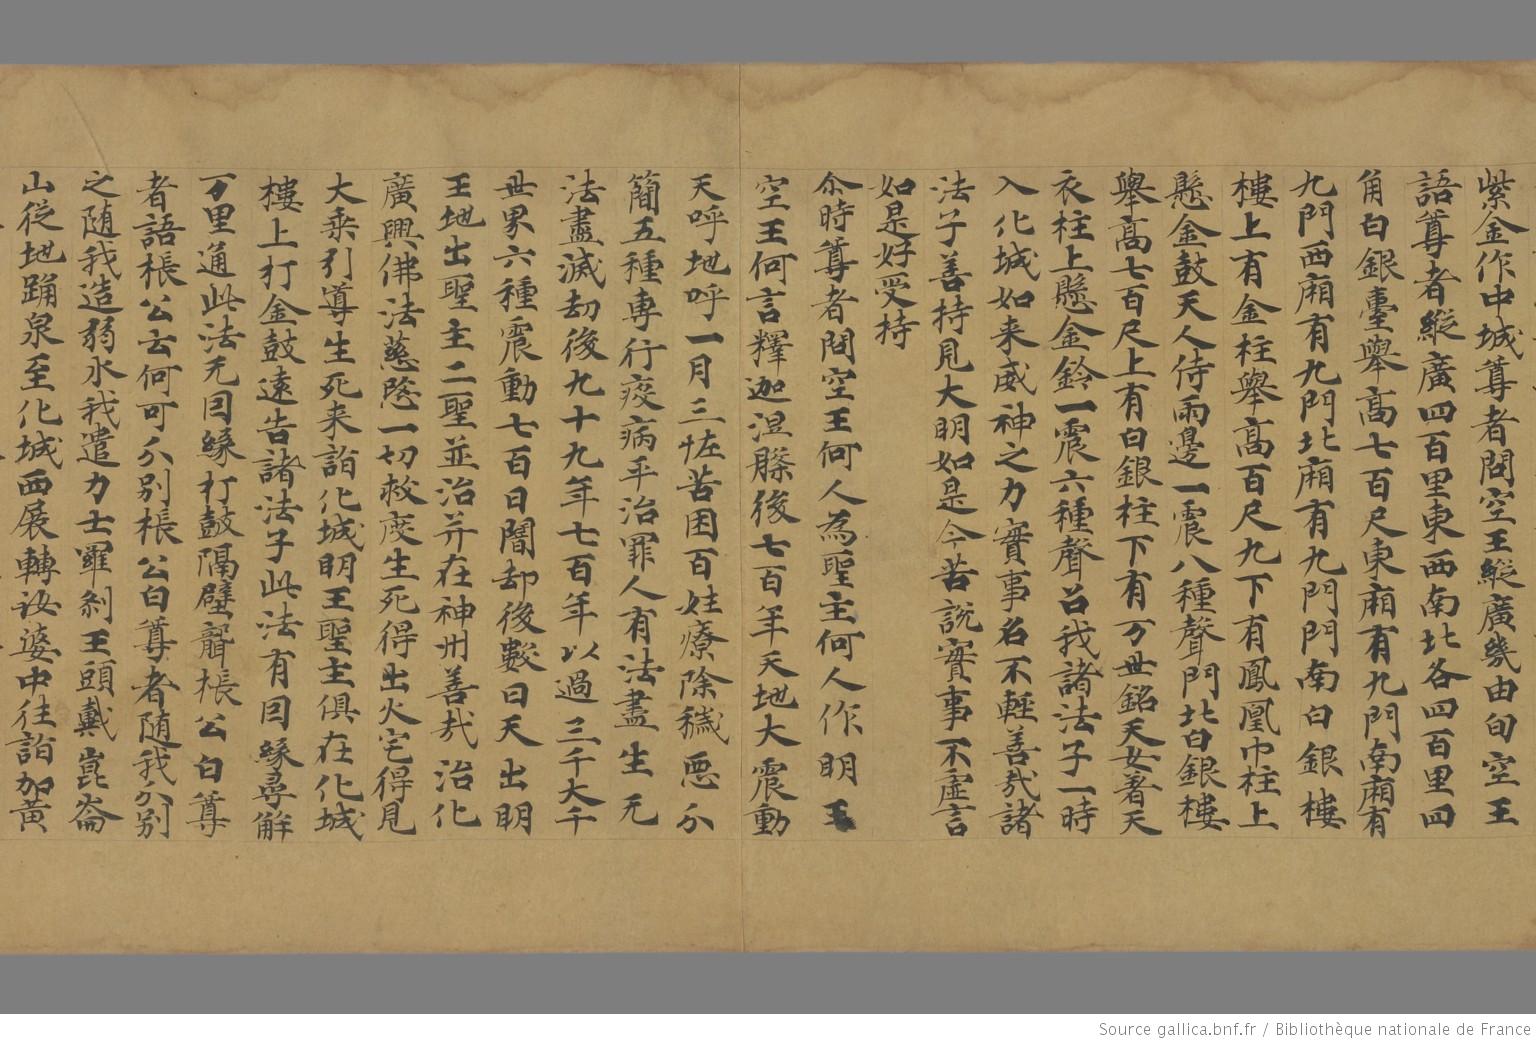 紫金作中城尊者問空王縱廣幾由旬空王
語尊者縱廣四百里東西南北各四百里四
角白銀臺舉高七百尺東廂有九門南廂有
九門西廂有九門北廂有九門門南白銀樓
樓上有金柱舉高百尺九下有鳳凰巾柱上
懸金鼓天人侍兩邊一震八種聲門北白銀樓
舉高七百尺上有白銀柱下有万世銘天女著天
衣柱上懸金鈴一震六種聲召我諸法子一時
入化城如来威神之力實事名不輕善哉諸
法子善持見大明如是今苦說實事不虛言
如是好受持
尒時尊者問空王何人為聖主何人作明王
空王何言釋迦涅槃後七百年天地大震動
天呼地呼一月三怪苦困百姓療除穢惡分
簡五種専行疫病平治罪人有法盡生无
法盡滅劫後九十九年七百年以過三千大千
世界六種震動七百日闇却後數日天出明
王地出聖主二聖並治并在神州善哉治化
廣興佛法慈愍一切救度生死得出火宅得見
大乘引導生死来詣化城明王聖主俱在化城
樓上打金鼓遠告諸法子此法有因緣尋解
万里通此法无因緣打鼓隔壁聾棖公白尊
者語棖公云何可分別棖公白尊者随我分別
之随我造弱水我遣力士羅剎王頭戴崑崙
山從地踊泉至化城西展轉娑婆中往詣加黃